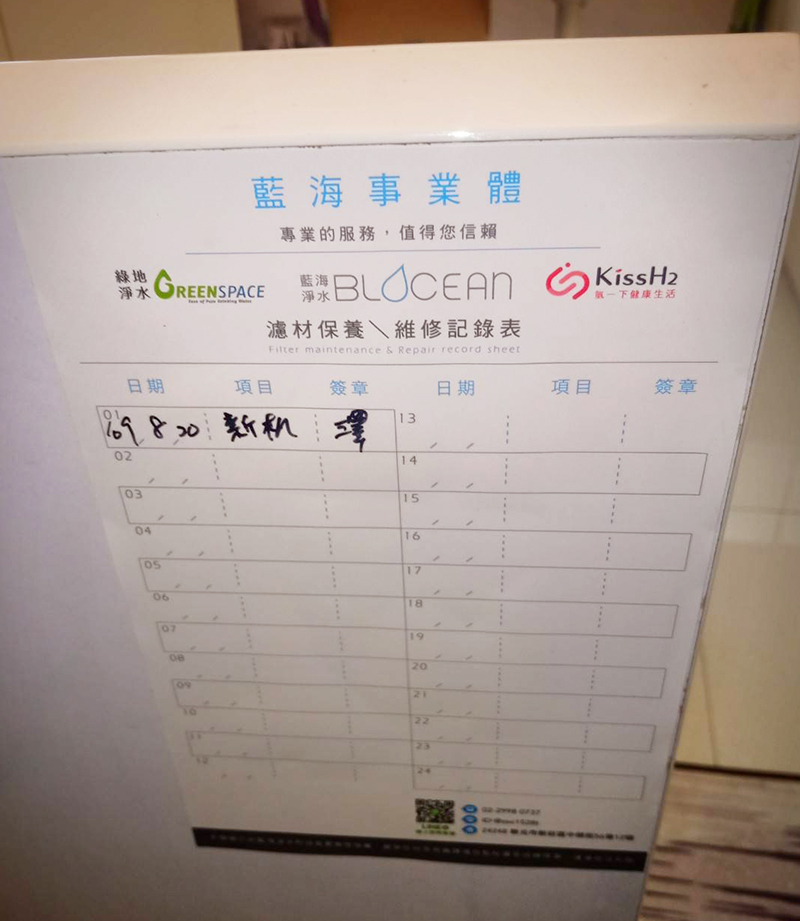 藍海事業體
專業的服務，值得您信賴
綠地淨水 GREENSPACE 藍海淨水 BLOCEAN KissH2
Ease of Pure Drinking Water 氫一下健康生活
濾材保養＼維修記錄表
Filter maintenance & Repair record sheet
日期 項目 簽章 日期 項目 簽章
01 109/8/20 新机 澤 13
02 14
03 15
04 16
05 17
06 18
07 19
08 20
09 21
10 22
11 23
12 24
02-2998 0737